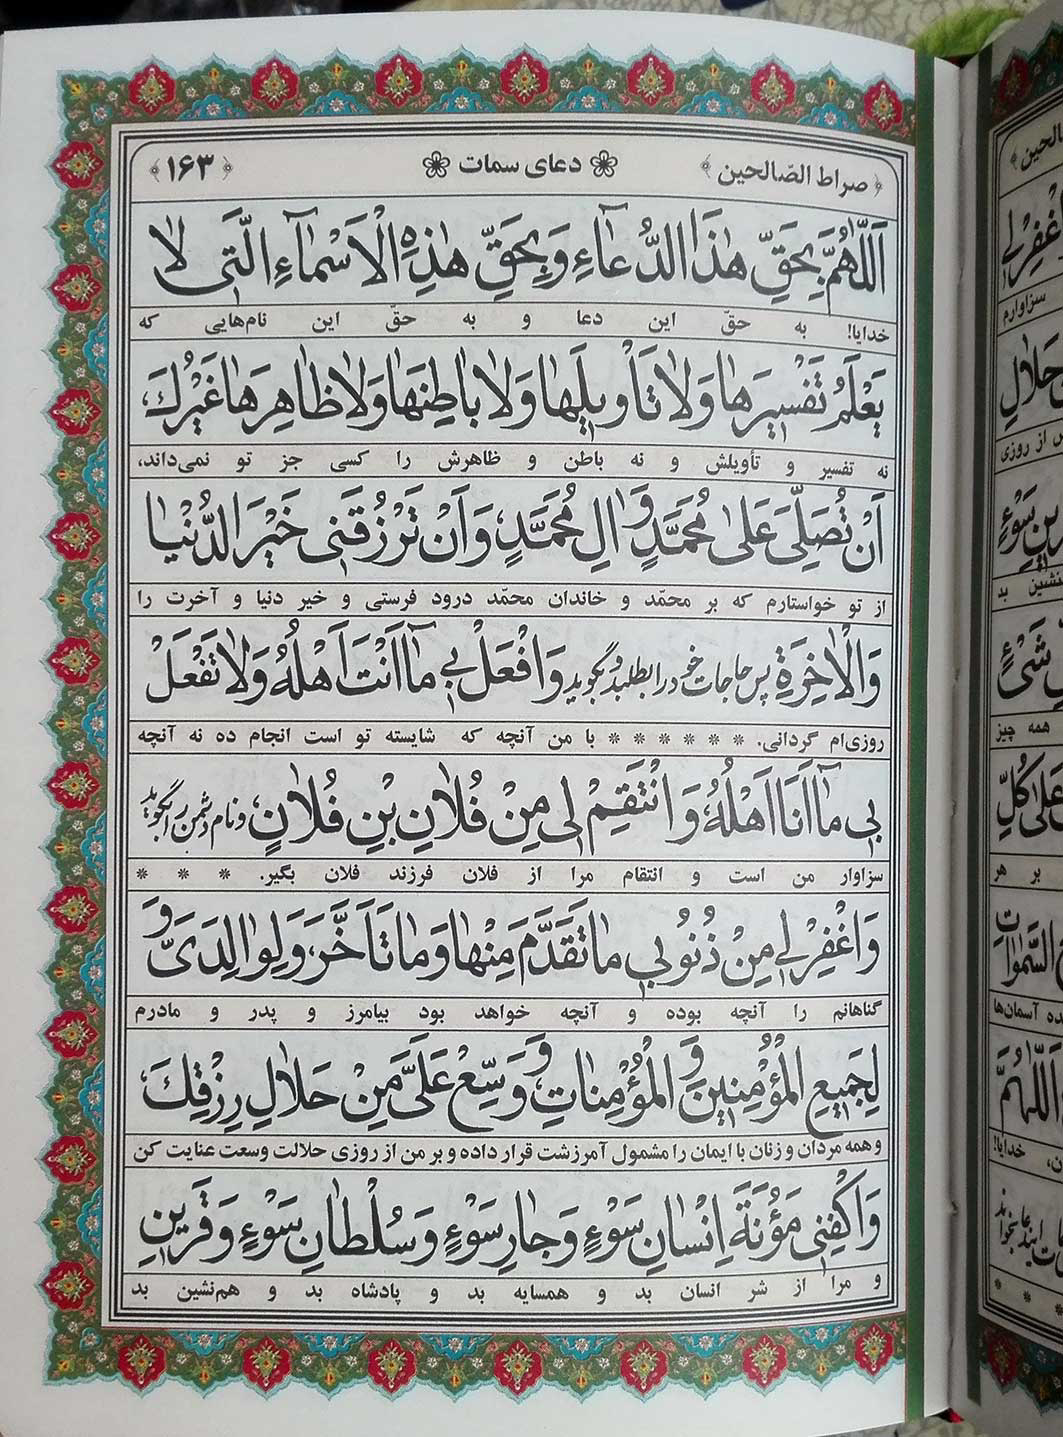 ﴿ صراط الصّالحین ﴾ ❀ دعای سمات ❀ ﴿ ۱۶۳ ﴾
اَللّٰهُمَّ بِحَقِّ هٰذَا الدُّعٰآءِ وَ بِحَقِّ هٰذِهِ الْاَسْمٰآءِ الَّتی لا
خدایا! به حقّ این دعا و به حقّ این نام‌هایی که
یَعْلَمُ تَفْسیرَهٰا وَلاٰ تَاْویلَهٰا وَلاٰ بٰاطِنَهٰا وَلاٰ ظٰاهِرَهٰا غَیْرُكَ،
نه تفسیر و تأویلش و نه باطن و ظاهرش را کسی جز تو نمی‌داند،
اَنْ تُصَلِّیَ عَلیٰ مُحَمَّدٍ وَ اٰلِ مُحَمَّدٍ، وَ اَنْ تَرْزُقَنی خَیْرَ الدُّنْیٰا
از تو خواستارم که بر محمّد و خاندان محمّد درود فرستی و خیر دنیا و آخرت را
وَ الْاٰخِرَةِ پس حاجات خود را بطلبد و بگوید وَ افْعَلْ بی مٰآ اَنْتَ اَهْلُهُ وَلاٰ تَفْعَلْ
روزی‌ام گردانی. * * * * * * با من آنچه که شایسته تو است انجام ده نه آنچه
بی مٰآ اَنَا اَهْلُهُ، وَ انْتَقِمْ لی مِنْ فُلاٰنِ بْنِ فُلاٰنٍ، و نام دشمن را بگوید
سزاوار من است و انتقام مرا از فلان فرزند فلان بگیر. * * *
وَ اغْفِرْ لی مِنْ ذُنُوبی مٰا تَقَدَّمَ مِنْهٰا وَ مٰا تَاَخَّرَ، وَ لِوٰالِدَیَّ وَ
گناهانم را آنچه بوده و آنچه خواهد بود بیامرز و پدر و مادرم
لِجَمیعِ الْمُؤْمِنینَ وَ الْمُؤْمِنٰاتِ، وَ وَسِّعْ عَلَیَّ مِنْ حَلاٰلِ رِزْقِكَ،
و همه مردان و زنان با ایمان را مشمول آمرزشت قرار داده و بر من از روزی حلالت وسعت عنایت کن
وَ اكْفِنی مَؤُنَةَ اِنْسٰانِ سَوْءٍ وَ جٰارِ سَوْءٍ وَ سُلْطٰانِ سَوْءٍ وَ قَرینِ
و مرا از شر انسان بد و همسایه بد و پادشاه بد و هم‌نشین بد